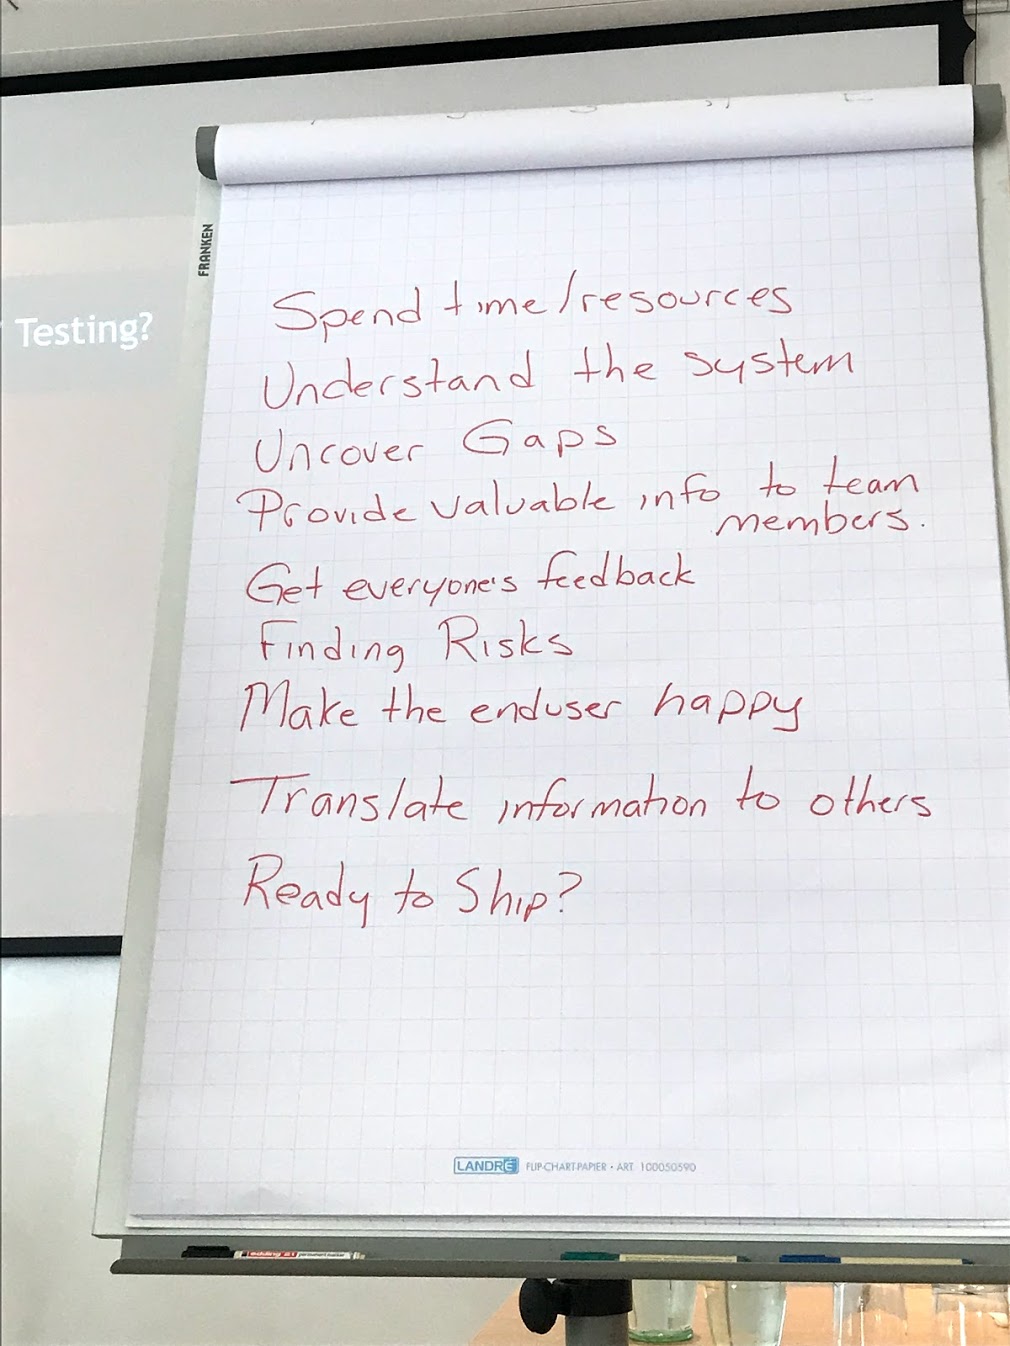 Testing?
FRANKEN
Spend time/resources
Understand the system
Uncover Gaps
Provide valuable info to team
members.
Get everyone's feedback
Finding Risks
Make the enduser happy
Translate information to others
Ready to Ship?
LANDRÉ FLIP-CHART-PAPIER • ART. 100050590
edding